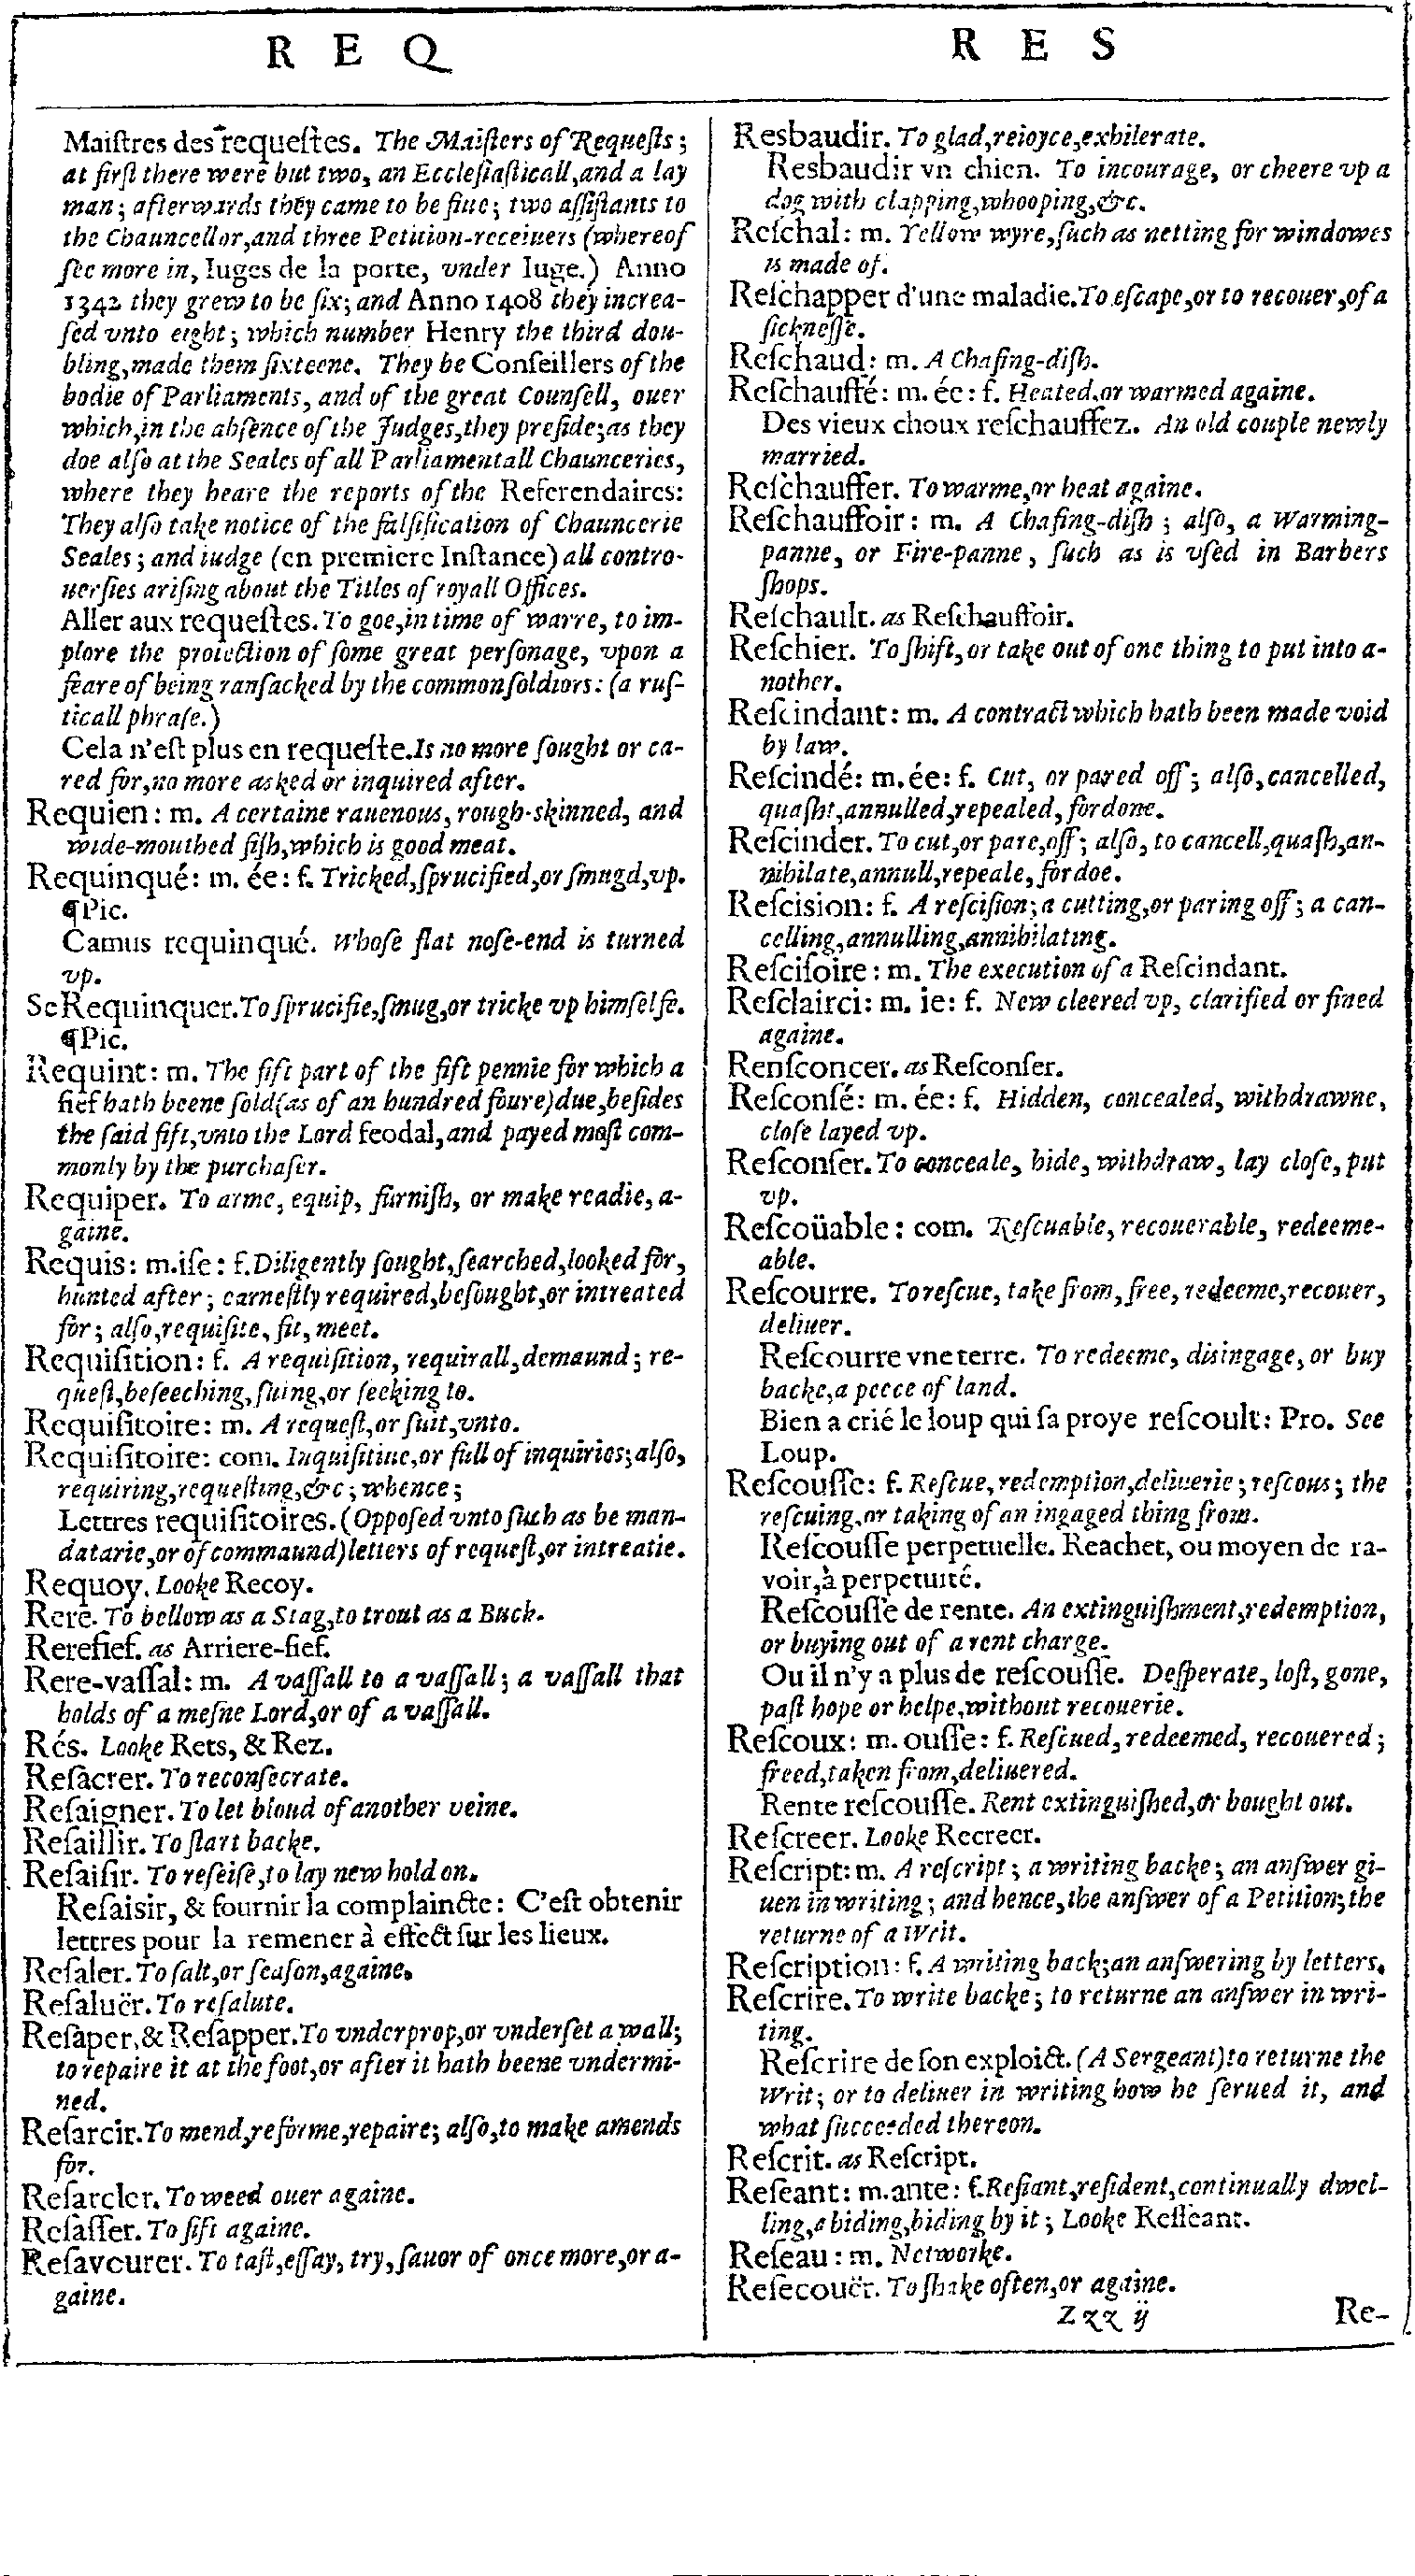 R E Q
Maiſtres des requeſtes. The Maiſters of Requeſts;
at firſt there were but two, an Eccleſiaſticall, and a lay
man; afterwards they came to be fiue; two aſſiſtants to
the Chauncellor, and three Petition-receiuers (whereof
ſee more in, Iuges de la porte, vnder Iuge.) Anno
1342 they grew to be ſix; and Anno 1408 they increa-
ſed vnto eight; which number Henry the third dou-
bling, made them ſixteene. They be Conſeillers of the
bodie of Parliaments, and of the great Counſell, ouer
which, in the abſence of the Judges, they preſide; as they
doe alſo at the Seales of all Parliamentall Chaunceries,
where they heare the reports of the Referendaires:
They alſo take notice of the falſification of Chauncerie
Seales; and iudge (en premiere Inſtance) all contro-
uerſies ariſing about the Titles of royall Offices.
Aller aux requeſtes. To goe, in time of warre, to im-
plore the protection of ſome great perſonage, vpon a
feare of being ranſacked by the common ſoldiors: (a ruſ-
ticall phraſe.)
Cela n'eſt plus en requeſte. Is no more ſought or ca-
red for, no more asked or inquired after.
Requien: m. A certaine rauenous, rough-skinned, and
wide-mouthed fiſh, which is good meat.
Requinqué: m. ée: f. Tricked, ſprucified, or ſmugd, vp.
¶Pic.
Camus requinqué. Whoſe flat noſe-end is turned
vp.
Se Requinquer. To ſprucifie, ſmug, or tricke vp himſelfe.
¶Pic.
Requint: m. The fift part of the fift pennie for which a
fief hath beene ſold (as of an hundred foure) due, beſides
the ſaid fift, vnto the Lord feodal, and payed moſt com-
monly by the purchaſer.
Requiper. To arme, equip, furniſh, or make readie, a-
gaine.
Requis: m. iſe: f. Diligently ſought, ſearched, looked for,
hunted after; earneſtly required, beſought, or intreated
for; alſo, requiſite, fit, meet.
Requiſition: f. A requiſition, requirall, demaund; re-
queſt, beſeeching, ſuing, or ſeeking to.
Requiſitoire: m. A requeſt, or ſuit, vnto.
Requiſitoire: com. Inquiſitiue, or full of inquiries; alſo,
requiring, requeſting, &c; whence;
Lettres requiſitoires. (Oppoſed vnto ſuch as be man-
datarie, or of commaund) letters of requeſt, or intreatie.
Requoy. Looke Recoy.
Rere. To bellow as a Stag, to trout as a Buck.
Rerefief. as Arriere-fief.
Rere-vaſſal: m. A vaſſall to a vaſſall; a vaſſall that
holds of a meſne Lord, or of a vaſſall.
Rés. Looke Rets, & Rez.
Reſacrer. To reconſecrate.
Reſaigner. To let bloud of another veine.
Reſaillir. To ſtart backe.
Reſaiſir. To reſeiſe, to lay new hold on.
Reſaisir, & fournir la complaincte: C'eſt obtenir
lettres pour la remener à effect ſur les lieux.
Reſaler. To ſalt, or ſeaſon, againe.
Reſaluër. To reſalute.
Reſaper, & Reſapper. To vnderprop, or vnderſet a wall;
to repaire it at the foot, or after it hath beene vndermi-
ned.
Reſarcir. To mend, reforme, repaire; alſo, to make amends
for.
Reſarcler. To weed ouer againe.
Reſaſſer. To ſift againe.
Reſaveurer. To taſt, eſſay, try, ſauor of once more, or a-
gaine.
R E S
Resbaudir. To glad, reioyce, exhilerate.
Resbaudir vn chien. To incourage, or cheere vp a
dog with clapping, whooping, &c.
Reſchal: m. Yellow wyre, ſuch as netting for windowes
is made of.
Reſchapper d'une maladie. To eſcape, or to recouer, of a
ſickneſſe.
Reſchaud: m. A Chafing-diſh.
Reſchauffé: m. ée: f. Heated, or warmed againe.
Des vieux choux reſchauffez. An old couple newly
married.
Reſchauffer. To warme, or heat againe.
Reſchauffoir: m. A Chafing-diſh; alſo, a Warming-
panne, or Fire-panne, ſuch as is vſed in Barbers
ſhops.
Reſchault. as Reſchauffoir.
Reſchier. To ſhift, or take out of one thing to put into a-
nother.
Reſcindant: m. A contract which hath been made void
by law.
Reſcindé: m. ée: f. Cut, or pared off; alſo, cancelled,
quaſht, annulled, repealed, fordone.
Reſcinder. To cut, or pare, off; alſo, to cancell, quaſh, an-
nihilate, annull, repeale, fordoe.
Reſcision: f. A reſciſion; a cutting, or paring off; a can-
celling, annulling, annihilating.
Reſciſoire: m. The execution of a Reſcindant.
Reſclairci: m. ie: f. New cleered vp, clarified or fined
againe.
Renſconcer. as Reſconſer.
Reſconſé: m. ée: f. Hidden, concealed, withdrawne,
cloſe layed vp.
Reſconſer. To conceale, hide, withdraw, lay cloſe, put
vp.
Reſcoüable: com. Reſcuable, recouerable, redeeme-
able.
Reſcourre. To reſcue, take from, free, redeeme, recouer,
deliuer.
Reſcourre vne terre. To redeeme, disingage, or buy
backe, a peece of land.
Bien a crié le loup qui ſa proye reſcoult: Pro. See
Loup.
Reſcouſſe: f. Reſcue, redemption, deliuerie; reſcous; the
reſcuing, or taking of an ingaged thing from.
Reſcouſſe perpetuelle. Reachet, ou moyen de ra-
voir, à perpetuité.
Reſcouſſe de rente. An extinguiſhment, redemption,
or buying out of a rent charge.
Ou il n'y a plus de reſcouſſe. Deſperate, loſt, gone,
paſt hope or helpe, without recouerie.
Reſcoux: m. ouſſe: f. Reſcued, redeemed, recouered;
freed, taken from, deliuered.
Rente reſcouſſe. Rent extinguiſhed, or bought out.
Reſcreer. Looke Recreer.
Reſcript: m. A reſcript; a writing backe; an anſwer gi-
uen in writing; and hence, the anſwer of a Petition; the
returne of a Writ.
Reſcription: f. A writing back; an anſwering by letters.
Reſcrire. To write backe; to returne an anſwer in wri-
ting.
Reſcrire de ſon exploict. (A Sergeant) to returne the
Writ; or to deliuer in writing how he ſerued it, and
what ſucceeded thereon.
Reſcrit. as Reſcript.
Reſeant: m. ante: f. Reſiant, reſident, continually dwel-
ling, abiding, biding by it; Looke Reſſeant.
Reſeau: m. Networke.
Reſecouër. To ſhake often, or againe.
Zzz ij Re-